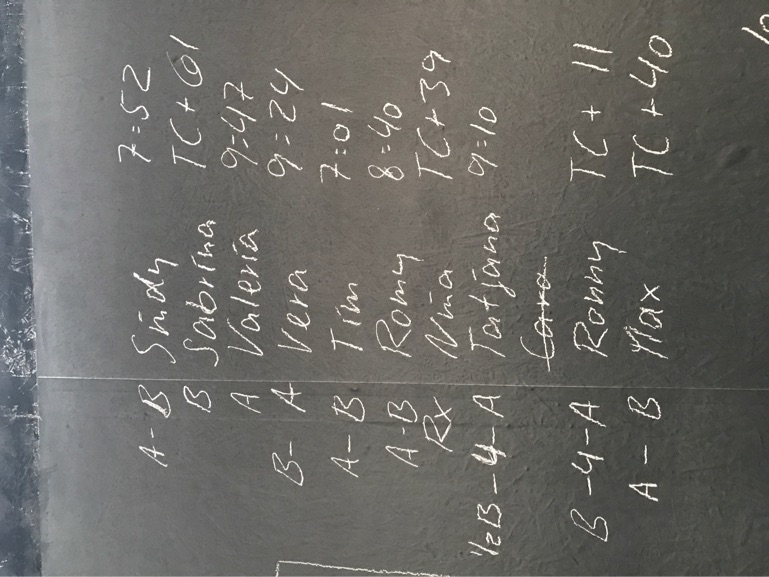 A-B Sindy 7:52
B Sabrina TC+61
A Valeria 9:47
B-A Vera 9:24
A-B Tim 7:01
A-B Romy 8:40
Rx Nina TC+39
1/2B-4-A Tatjana 9:10
B-4-A Ronny TC+11
A-B Max TC+40